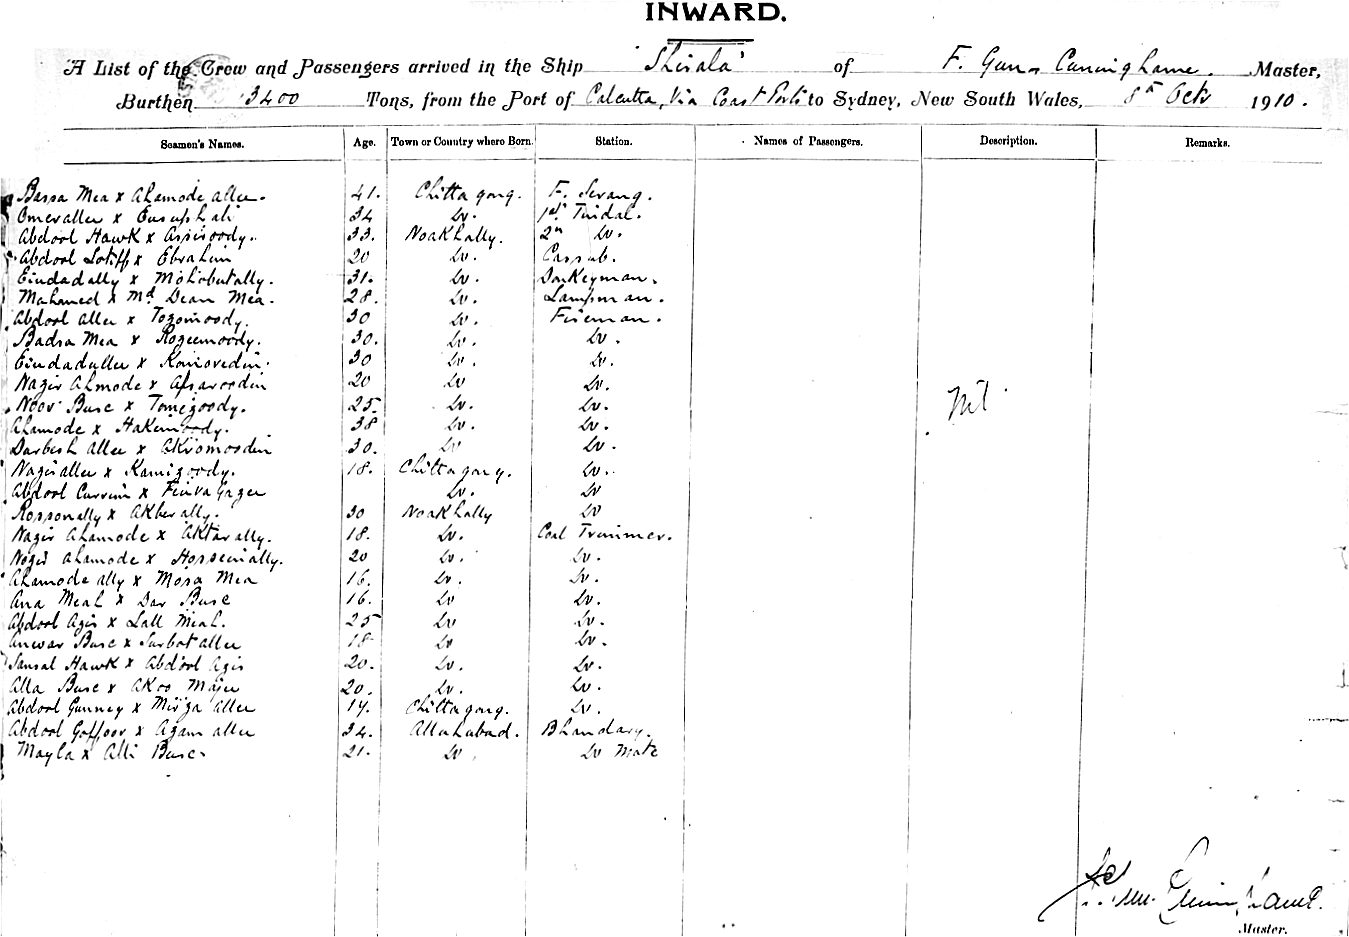 INWARD.
A List of the Crew and Passengers arrived in the Ship "Shirala" of F. Gunn Cunninghame. Master,
Burthen 3400 Tons, from the Port of Calcutta, Via Coast Ports to Sydney, New South Wales, 8th Oct 1910.
Seamen's Names. Age. Town or Country where Born. Station. Names of Passengers. Description. Remarks.
Bassa Mea x Ahamode allee. 41. Chittagong. F. Serang.
Omerallee x Eusuph ali 34 Do. 1st Tindal.
Abdool Hawk x Assiroody. 33. Noakhally. 2n Do.
Abdool Lotiff x Ebrahim 20 Do. Cassab.
Eindadally x Mohobutally. 31. Do. Donkeyman.
Mahamed x Md. Dean Mea. 28. Do. Lampman.
Abdool allee x Tozomoody. 30 Do. Fireman.
Badsa Mea x Rozeemoody. 30. Do. Do.
Eindadullee x Komoredin. 30 Do. Do.
Nazir Ahmode x Afsaroodin 20 Do Do.
Noor Buse x Tomizoody. 25. Do. Do.
Ahamode x Hakimoody. 38 Do. Do.
Darbesh allee x Akromoodin 30. Do Do.
Nazirallee x Kamizoody. 18. Chittagong. Do.
Abdool Currim x Gazee Do. Do
Rossonally x Akberally. 30 Noakhally Do
Nazir Ahamode x Aktarally. 18. Do. Coal Trimmer.
Nozir Ahamode x Hosseinally. 20 Do. Do.
Ahamode ally x Mosa Mea 16. Do. Do.
Ana Meah x Dar Buse 16. Do Do.
Abdool Azis x Lall Meah. 25 Do Do.
Anwar Buse x Surbatallee 18 Do Do.
Sansal Hawk x Abdool Azis 20. Do. Do.
Alla Buse x Akoo Majee 20. Do. Do.
Abdool Gunney x Mirza allee 19. Chittagong. Do.
Abdool Goffoor x Azam allee 34. Allahabad. Bhandary.
Mayla x Alli Buse. 21. Do. Do Mate
Nil
Master.